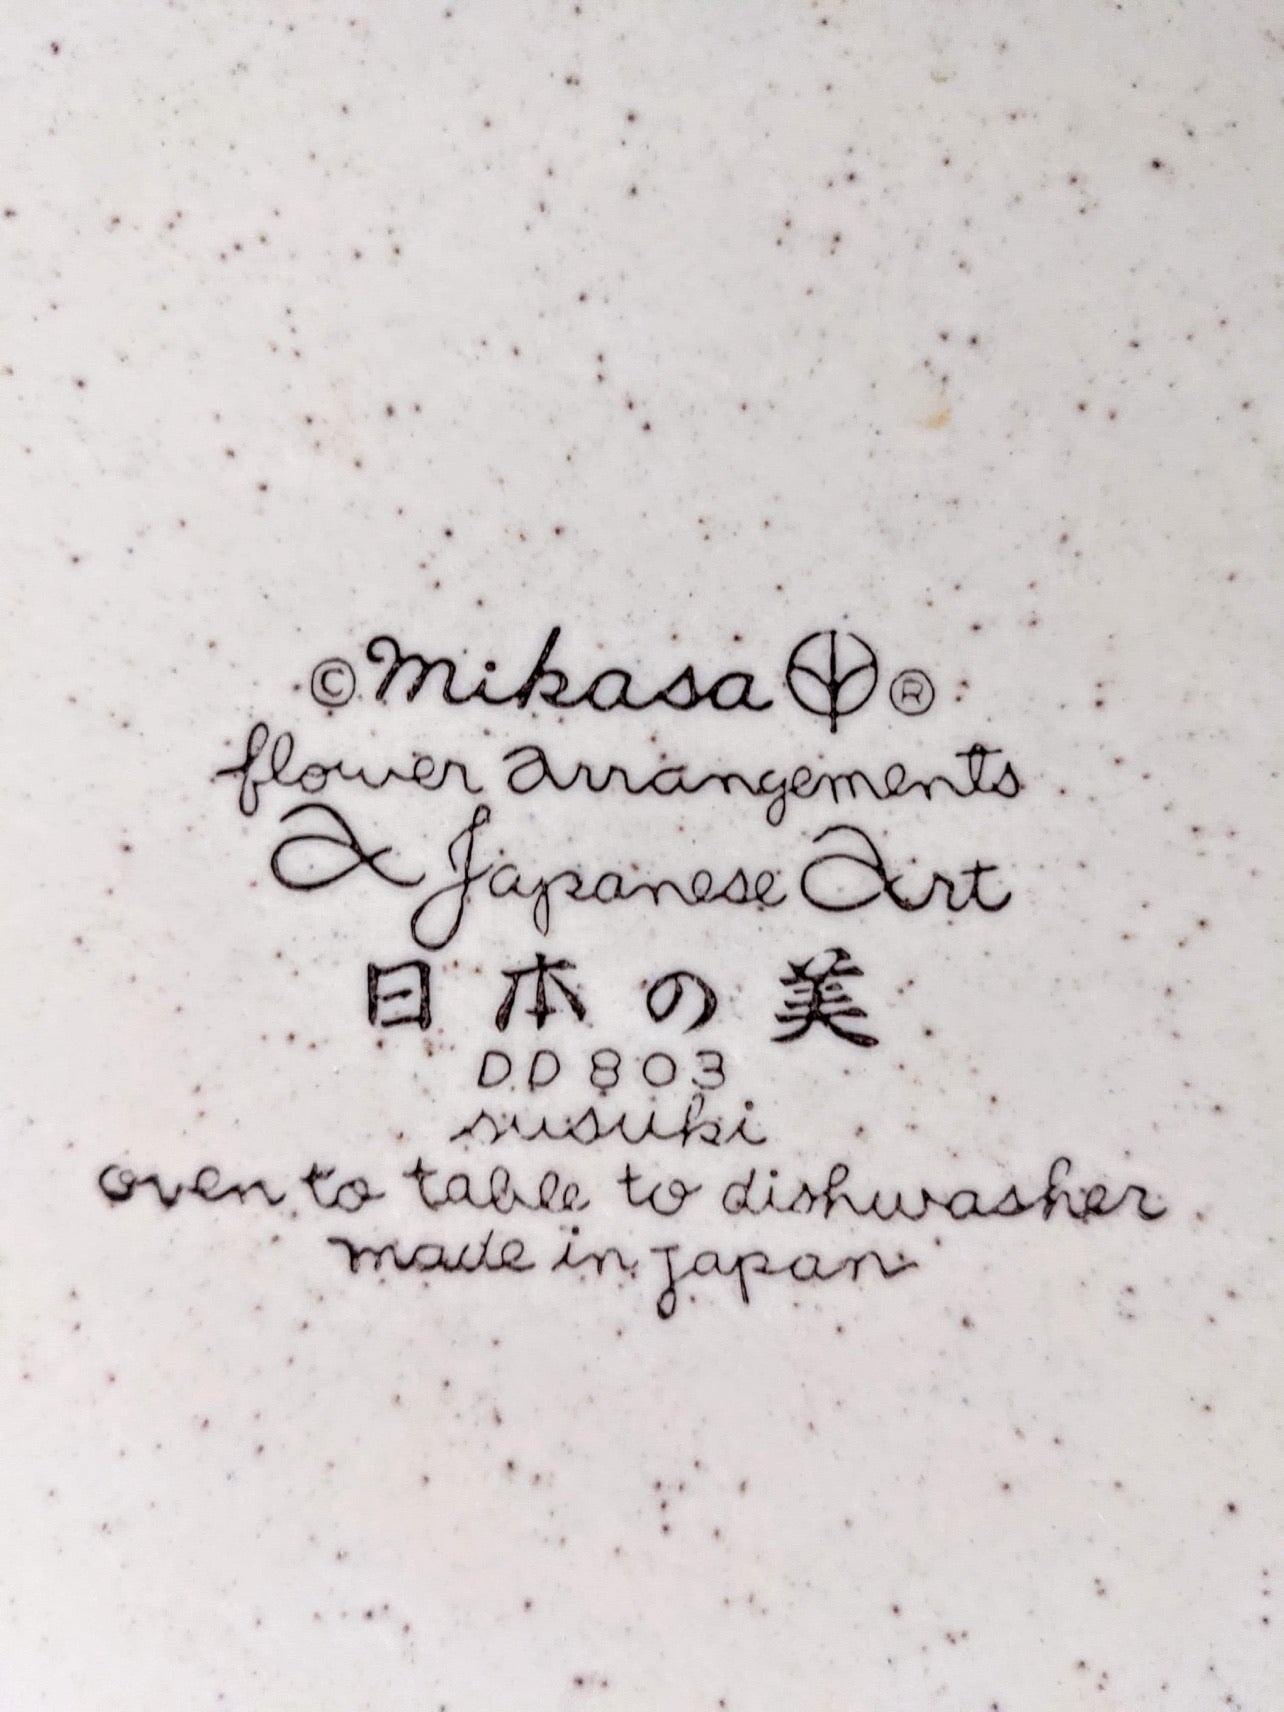 © mikasa ®
flower arrangements
A Japanese Art
日本の美
DD 803
susuki
oven to table to dishwasher
made in japan